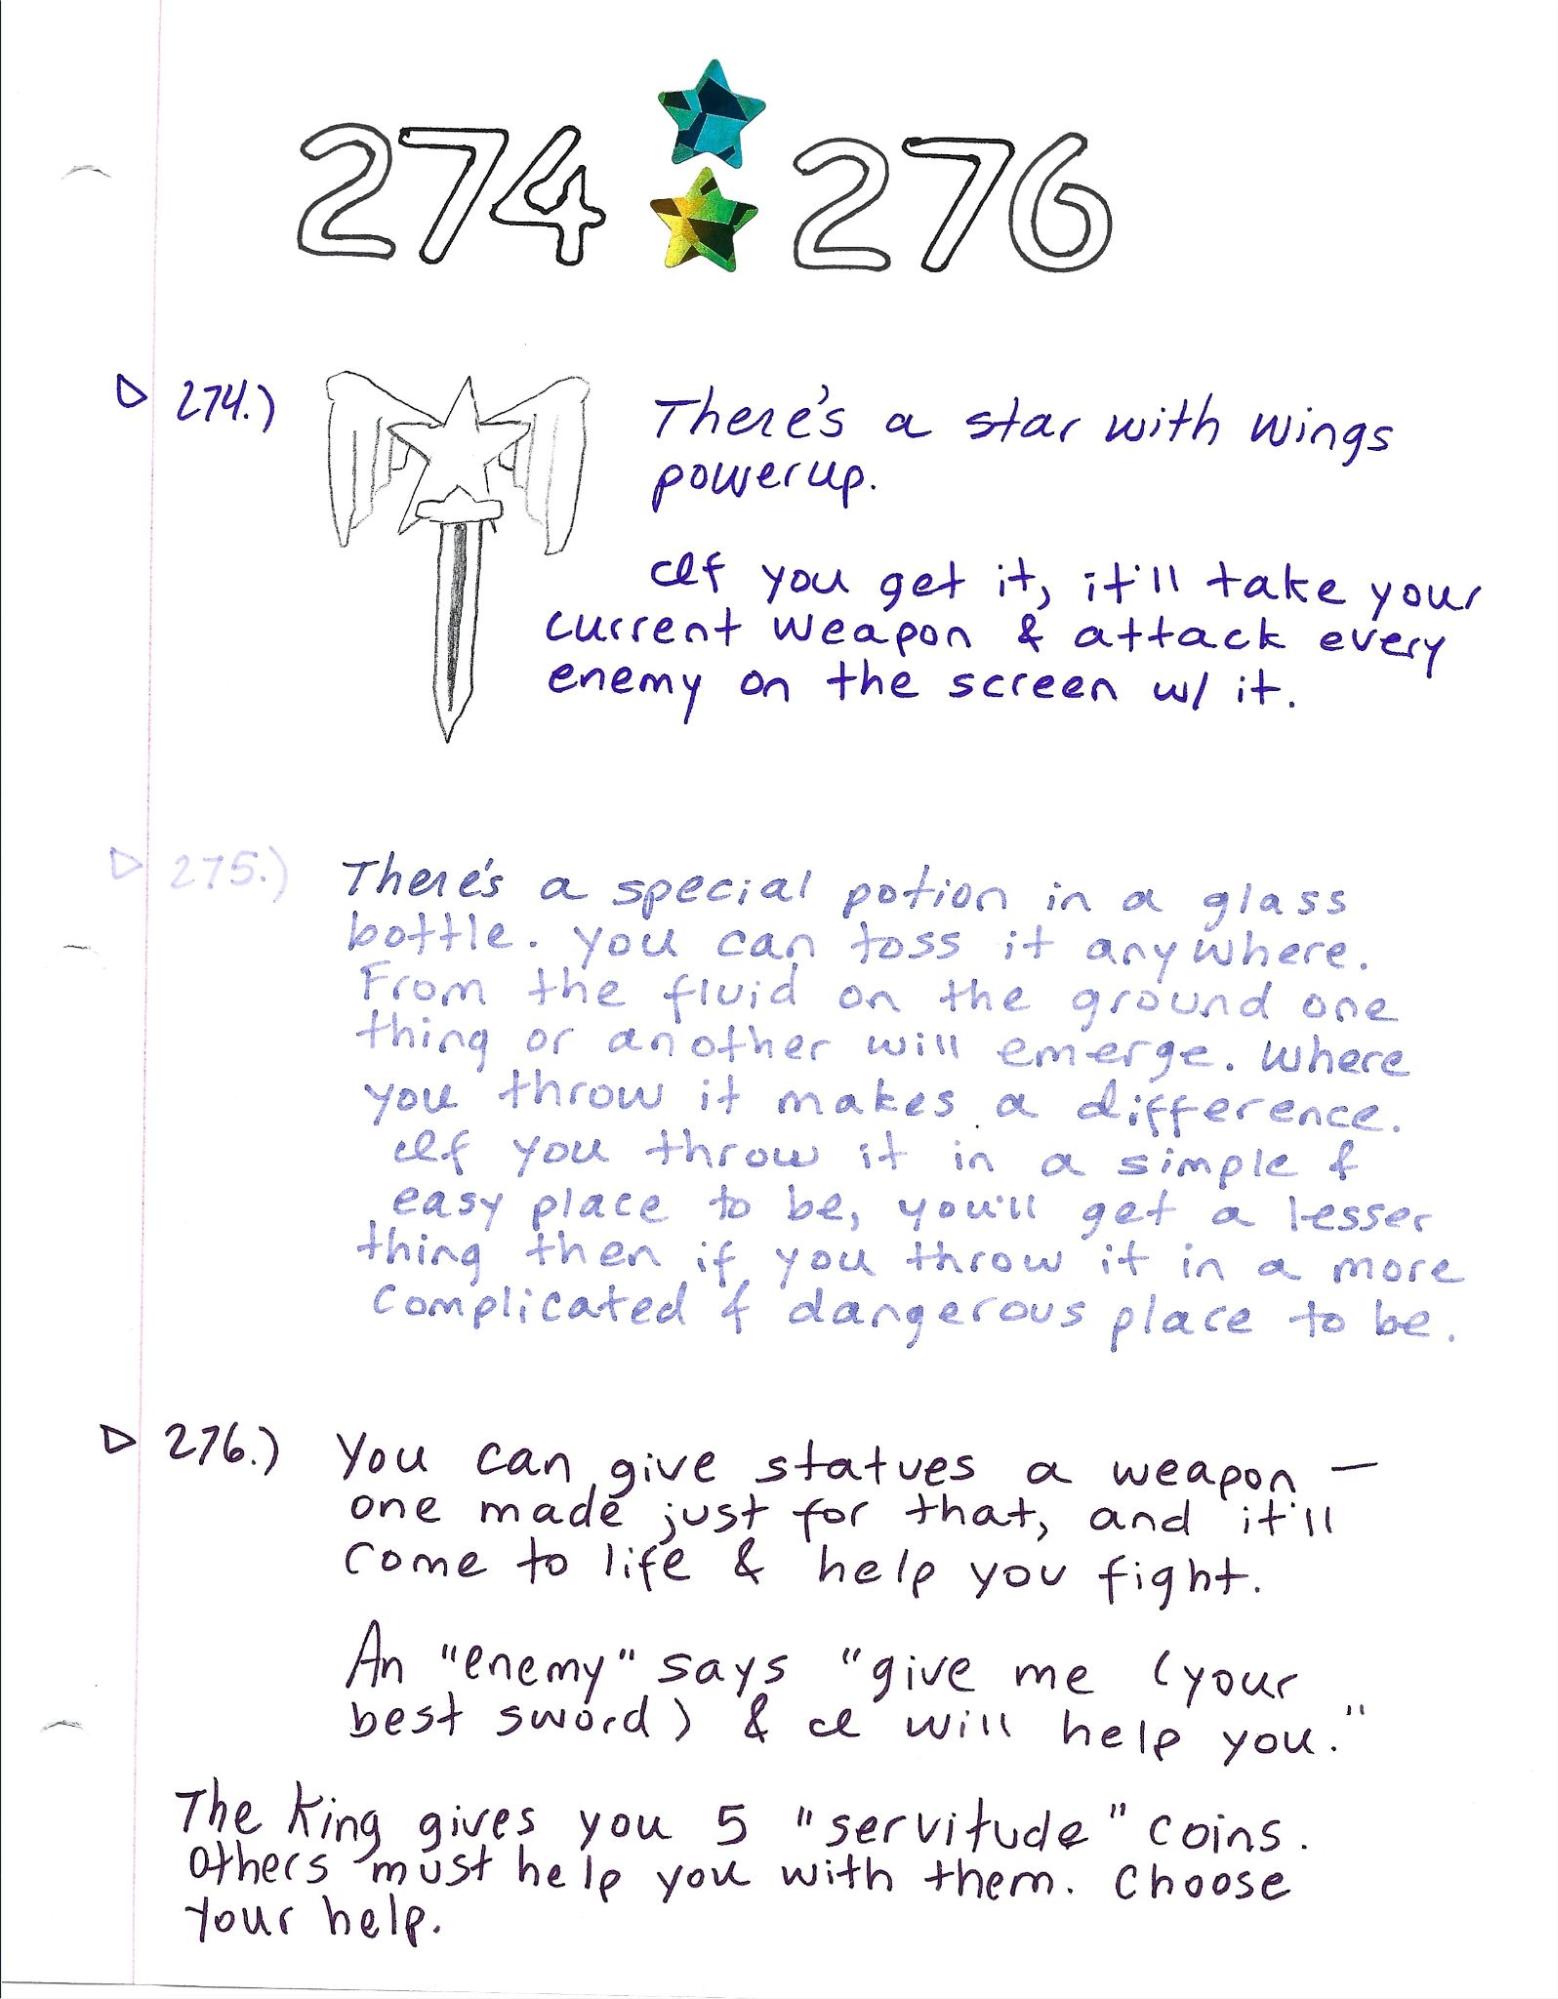 274 276
274.) There's a star with wings
powerup.
If you get it, it'll take your
current weapon & attack every
enemy on the screen w/ it.
275.) There's a special potion in a glass
bottle. You can toss it anywhere.
From the fluid on the ground one
thing or another will emerge. Where
you throw it makes a difference.
If you throw it in a simple &
easy place to be, you'll get a lesser
thing then if you throw it in a more
complicated & dangerous place to be.
276.) You can give statues a weapon —
one made just for that, and it'll
come to life & help you fight.
An "enemy" says "give me (your
best sword) & I will help you."
The King gives you 5 "servitude" coins.
Others must help you with them. Choose
Your help.